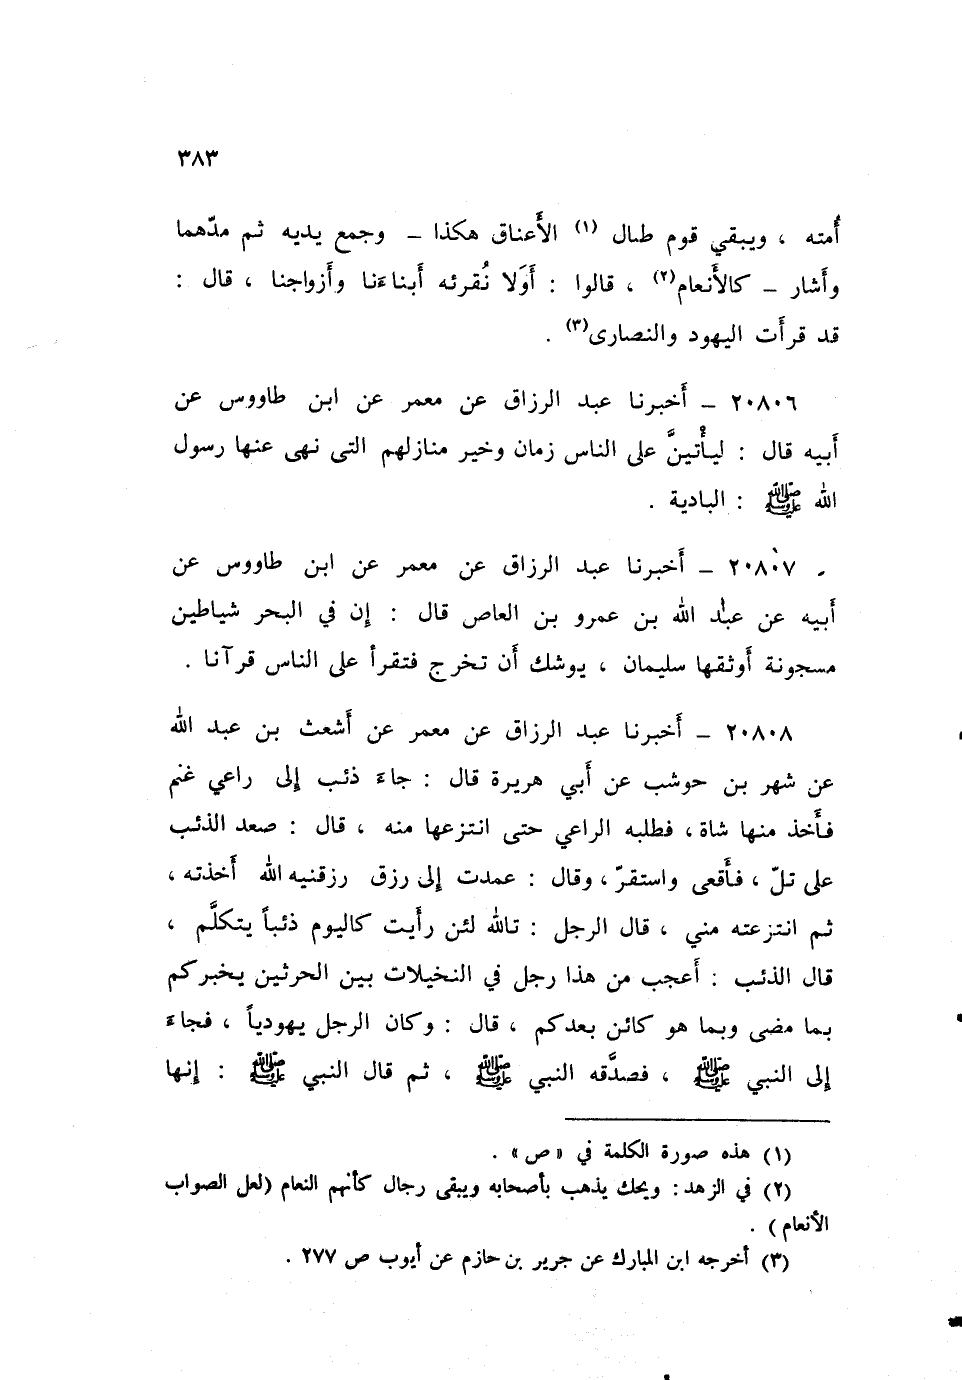 ٣٨٣
أُمته ، ويبقي قوم طبال (١) الأَعناق هكذا ــ وجمع يديه ثم مدّهما
وأَشار ــ كالأَنعام(٢) ، قالوا : أَوَلا نُقرئه أَبناءَنا وأَزواجنا ، قال :
قد قرأَت اليهود والنصارى(٣) .
٢٠٨٠٦ ــ أَخبرنا عبد الرزاق عن معمر عن ابن طاووس عن
أَبيه قال : ليأْتينَّ على الناس زمان وخير منازلهم التى نهى عنها رسول
الله ﷺ : البادية .
٢٠٨٠٧ ــ أَخبرنا عبد الرزاق عن معمر عن ابن طاووس عن
أَبيه عن عبد الله بن عمرو بن العاص قال : إن في البحر شياطين
مسجونة أَوثقها سليمان ، يوشك أَن تخرج فتقرأ على الناس قرآنا .
٢٠٨٠٨ ــ أَخبرنا عبد الرزاق عن معمر عن أَشعث بن عبد الله
عن شهر بن حوشب عن أَبي هريرة قال : جاءَ ذئب إلى راعي غنم
فأَخذ منها شاة ، فطلبه الراعي حتى انتزعها منه ، قال : صعد الذئب
على تلّ ، فأَقعى واستقرّ ، وقال : عمدت إلى رزق رزقنيه الله أَخذته ،
ثم انتزعته مني ، قال الرجل : تالله لئن رأَيت كاليوم ذئباً يتكلَّم ،
قال الذئب : أَعجب من هذا رجل في النخيلات بين الحرثين يخبركم
بما مضى وبما هو كائن بعدكم ، قال : وكان الرجل يهودياً ، فجاءَ
إلى النبي ﷺ ، فصدَّقه النبي ﷺ ، ثم قال النبي ﷺ : إنها
(١) هذه صورة الكلمة في «ص» .
(٢) في الزهد : ويحك يذهب بأصحابه ويبقى رجال كأنهم النعام (لعل الصواب
الأنعام) .
(٣) أخرجه ابن المبارك عن جرير بن حازم عن أيوب ص ٢٧٧ .